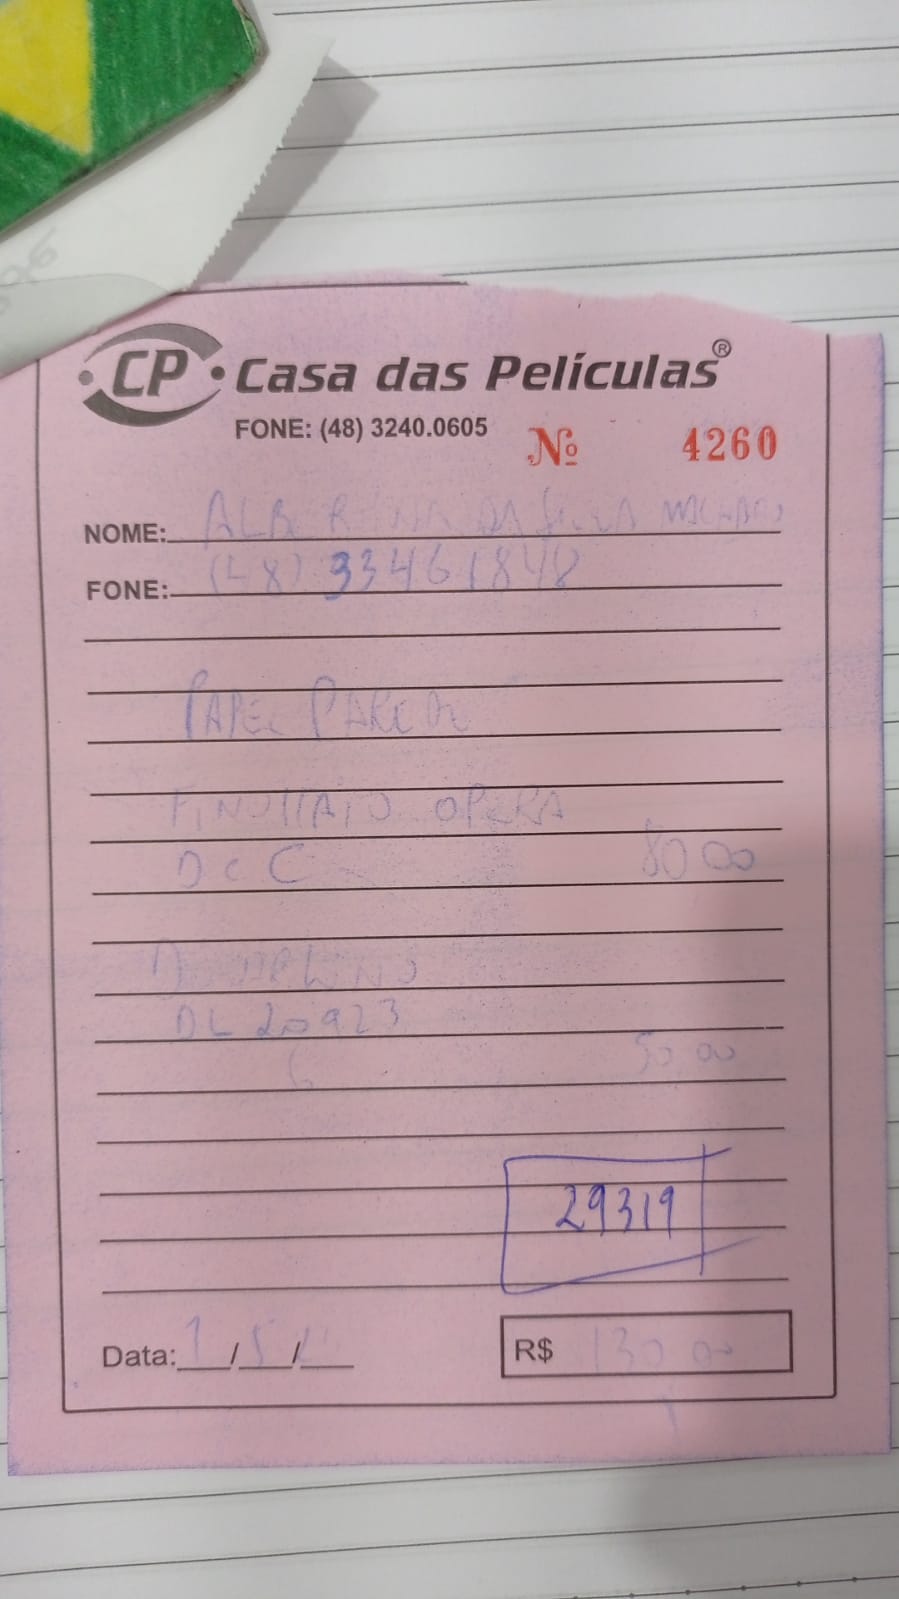 CP Casa das Películas®
FONE: (48) 3240.0605
Nº 4260
NOME: DA
FONE: (48) 33461848
PAPEL PAREDE
OPERA
DCC 80 00
DL 20923
50,00
29319
Data: / 5 /
R$ 130 00